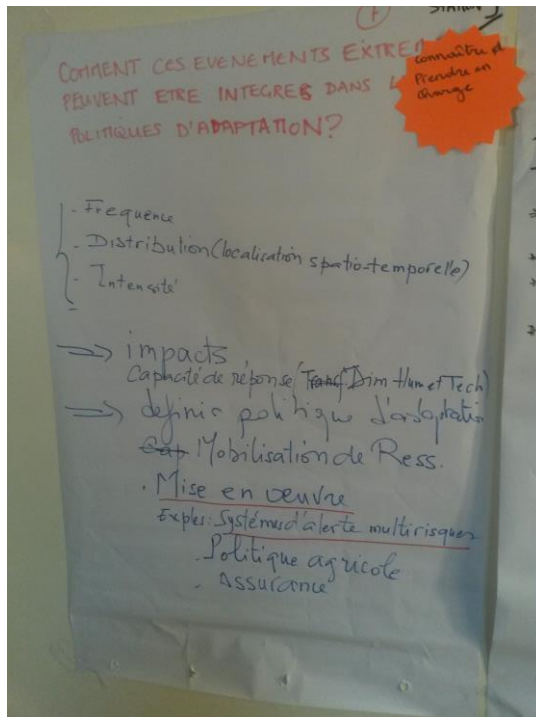 1
STATION
COMMENT CES EVENEMENTS EXTRE
PEUVENT ETRE INTEGRES DANS L
POLITIQUES D'ADAPTATION?
connaître et
Prendre en
charge
- Frequence
- Distribution (localisation spatio-temporelle)
- Intensité
-
⇒ impacts
Capacité de réponse (Transf Dim Hum et Tech)
⇒ definir politique d'adaptation
Cap Mobilisation de Ress.
. Mise en oeuvre
Exples: Systémes d'alerte multirisques
. Politique agricole
. Assurance